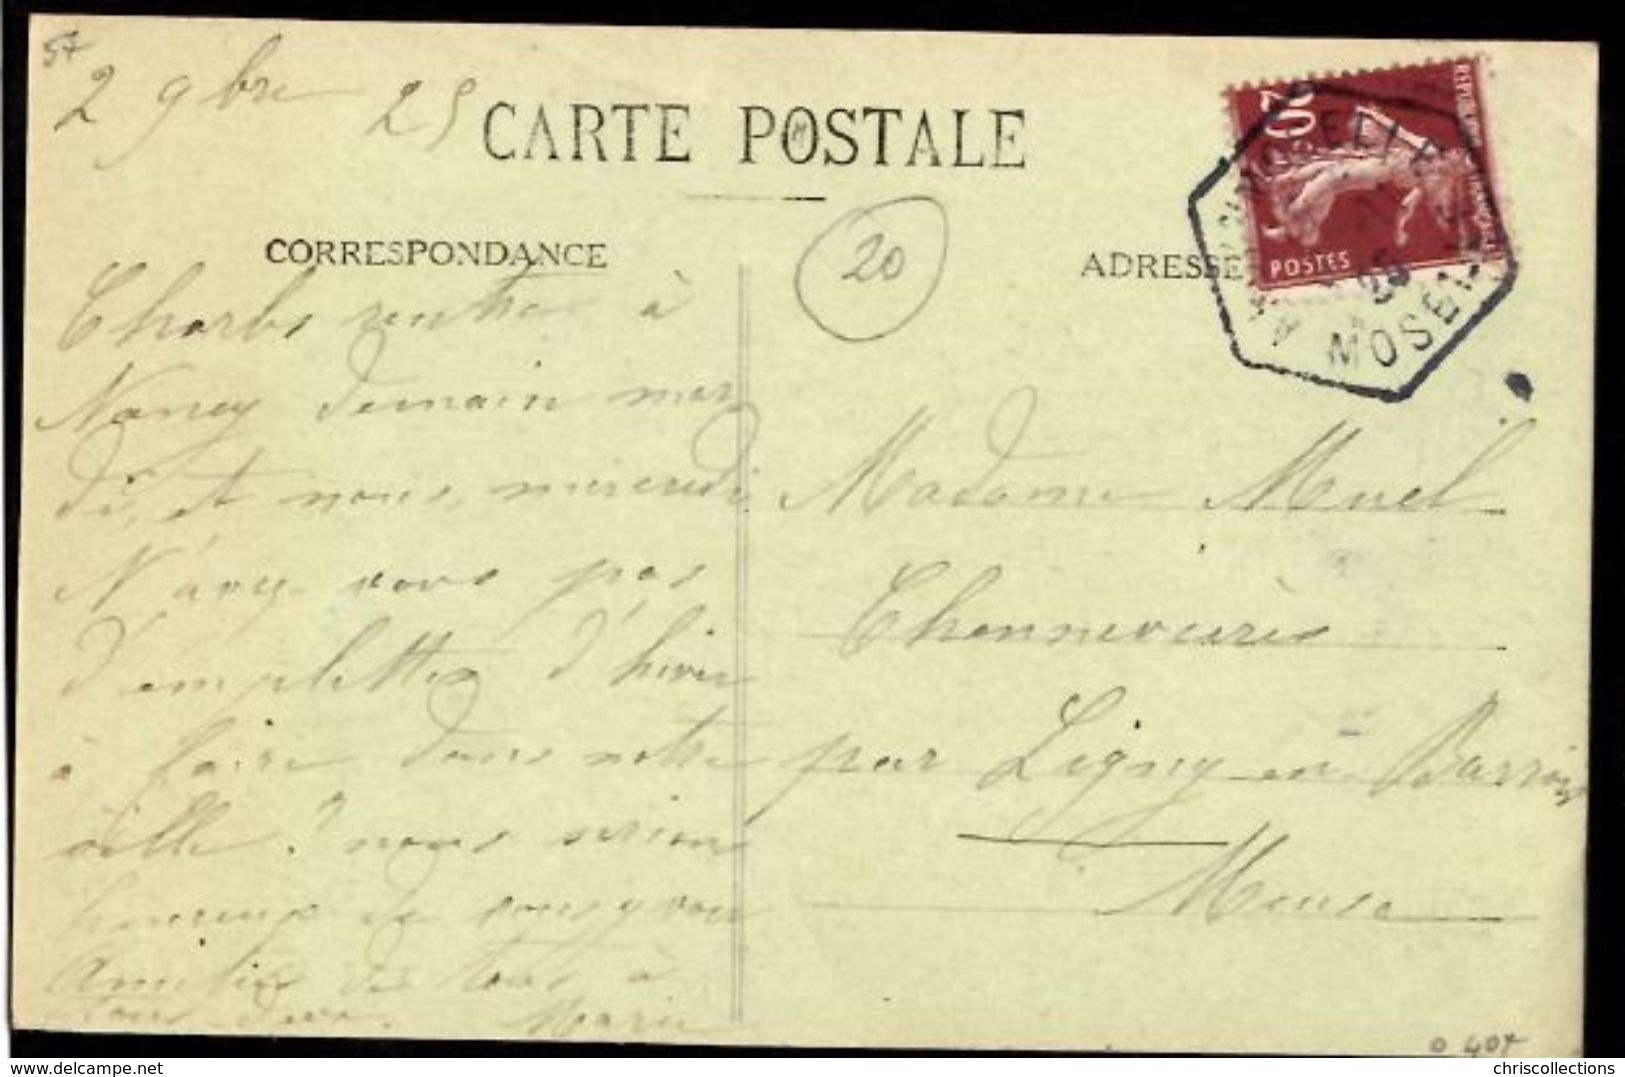 57
2 9bre 25
CARTE POSTALE
CORRESPONDANCE
20
ADRESSE
20
POSTES
MOSELLE
MOSELLE
Charles rentre à
Nancy demain mar
di, et nous, mercredi
N'avez-vous pas
d'emplettes d'hiver
à faire dans notre
ville ? nous serions
heureux de vous y voir
Amitiés de tous à
tous deux. Marie
Madame Muel
Chennevières
par Ligny-en-Barrois
Meuse
0 407
chriscollections